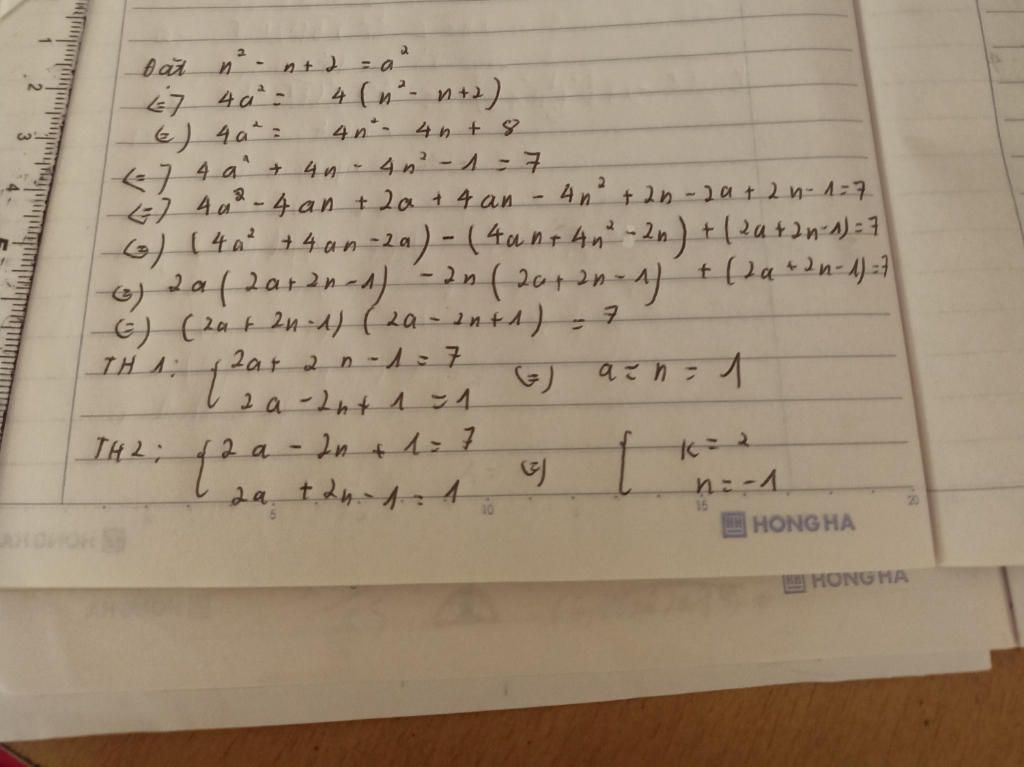 Đặt n² - n + 2 = a²
<=> 4a² = 4 ( n² - n + 2 )
<=> 4a² = 4n² - 4n + 8
<=> 4a² + 4n - 4n² - 1 = 7
<=> 4a² - 4an + 2a + 4an - 4n² + 2n - 2a + 2n - 1 = 7
<=> ( 4a² + 4an - 2a ) - ( 4an + 4n² - 2n ) + ( 2a + 2n - 1 ) = 7
<=> 2a ( 2a + 2n - 1 ) - 2n ( 2a + 2n - 1 ) + ( 2a + 2n - 1 ) = 7
<=> ( 2a + 2n - 1 ) ( 2a - 2n + 1 ) = 7
TH 1 : { 2a + 2n - 1 = 7
2a - 2n + 1 = 1 <=> a = n = 1
TH 2 : { 2a - 2n + 1 = 7 { K = 2
2a + 2n - 1 = 1 <=> n = -1
5 10 15 20
HH HONG HA
HH HONG HA
1
2
3
4